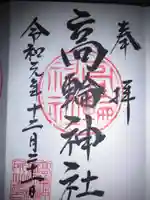 奉拝
高輪神社
令和元年十二月二十二日